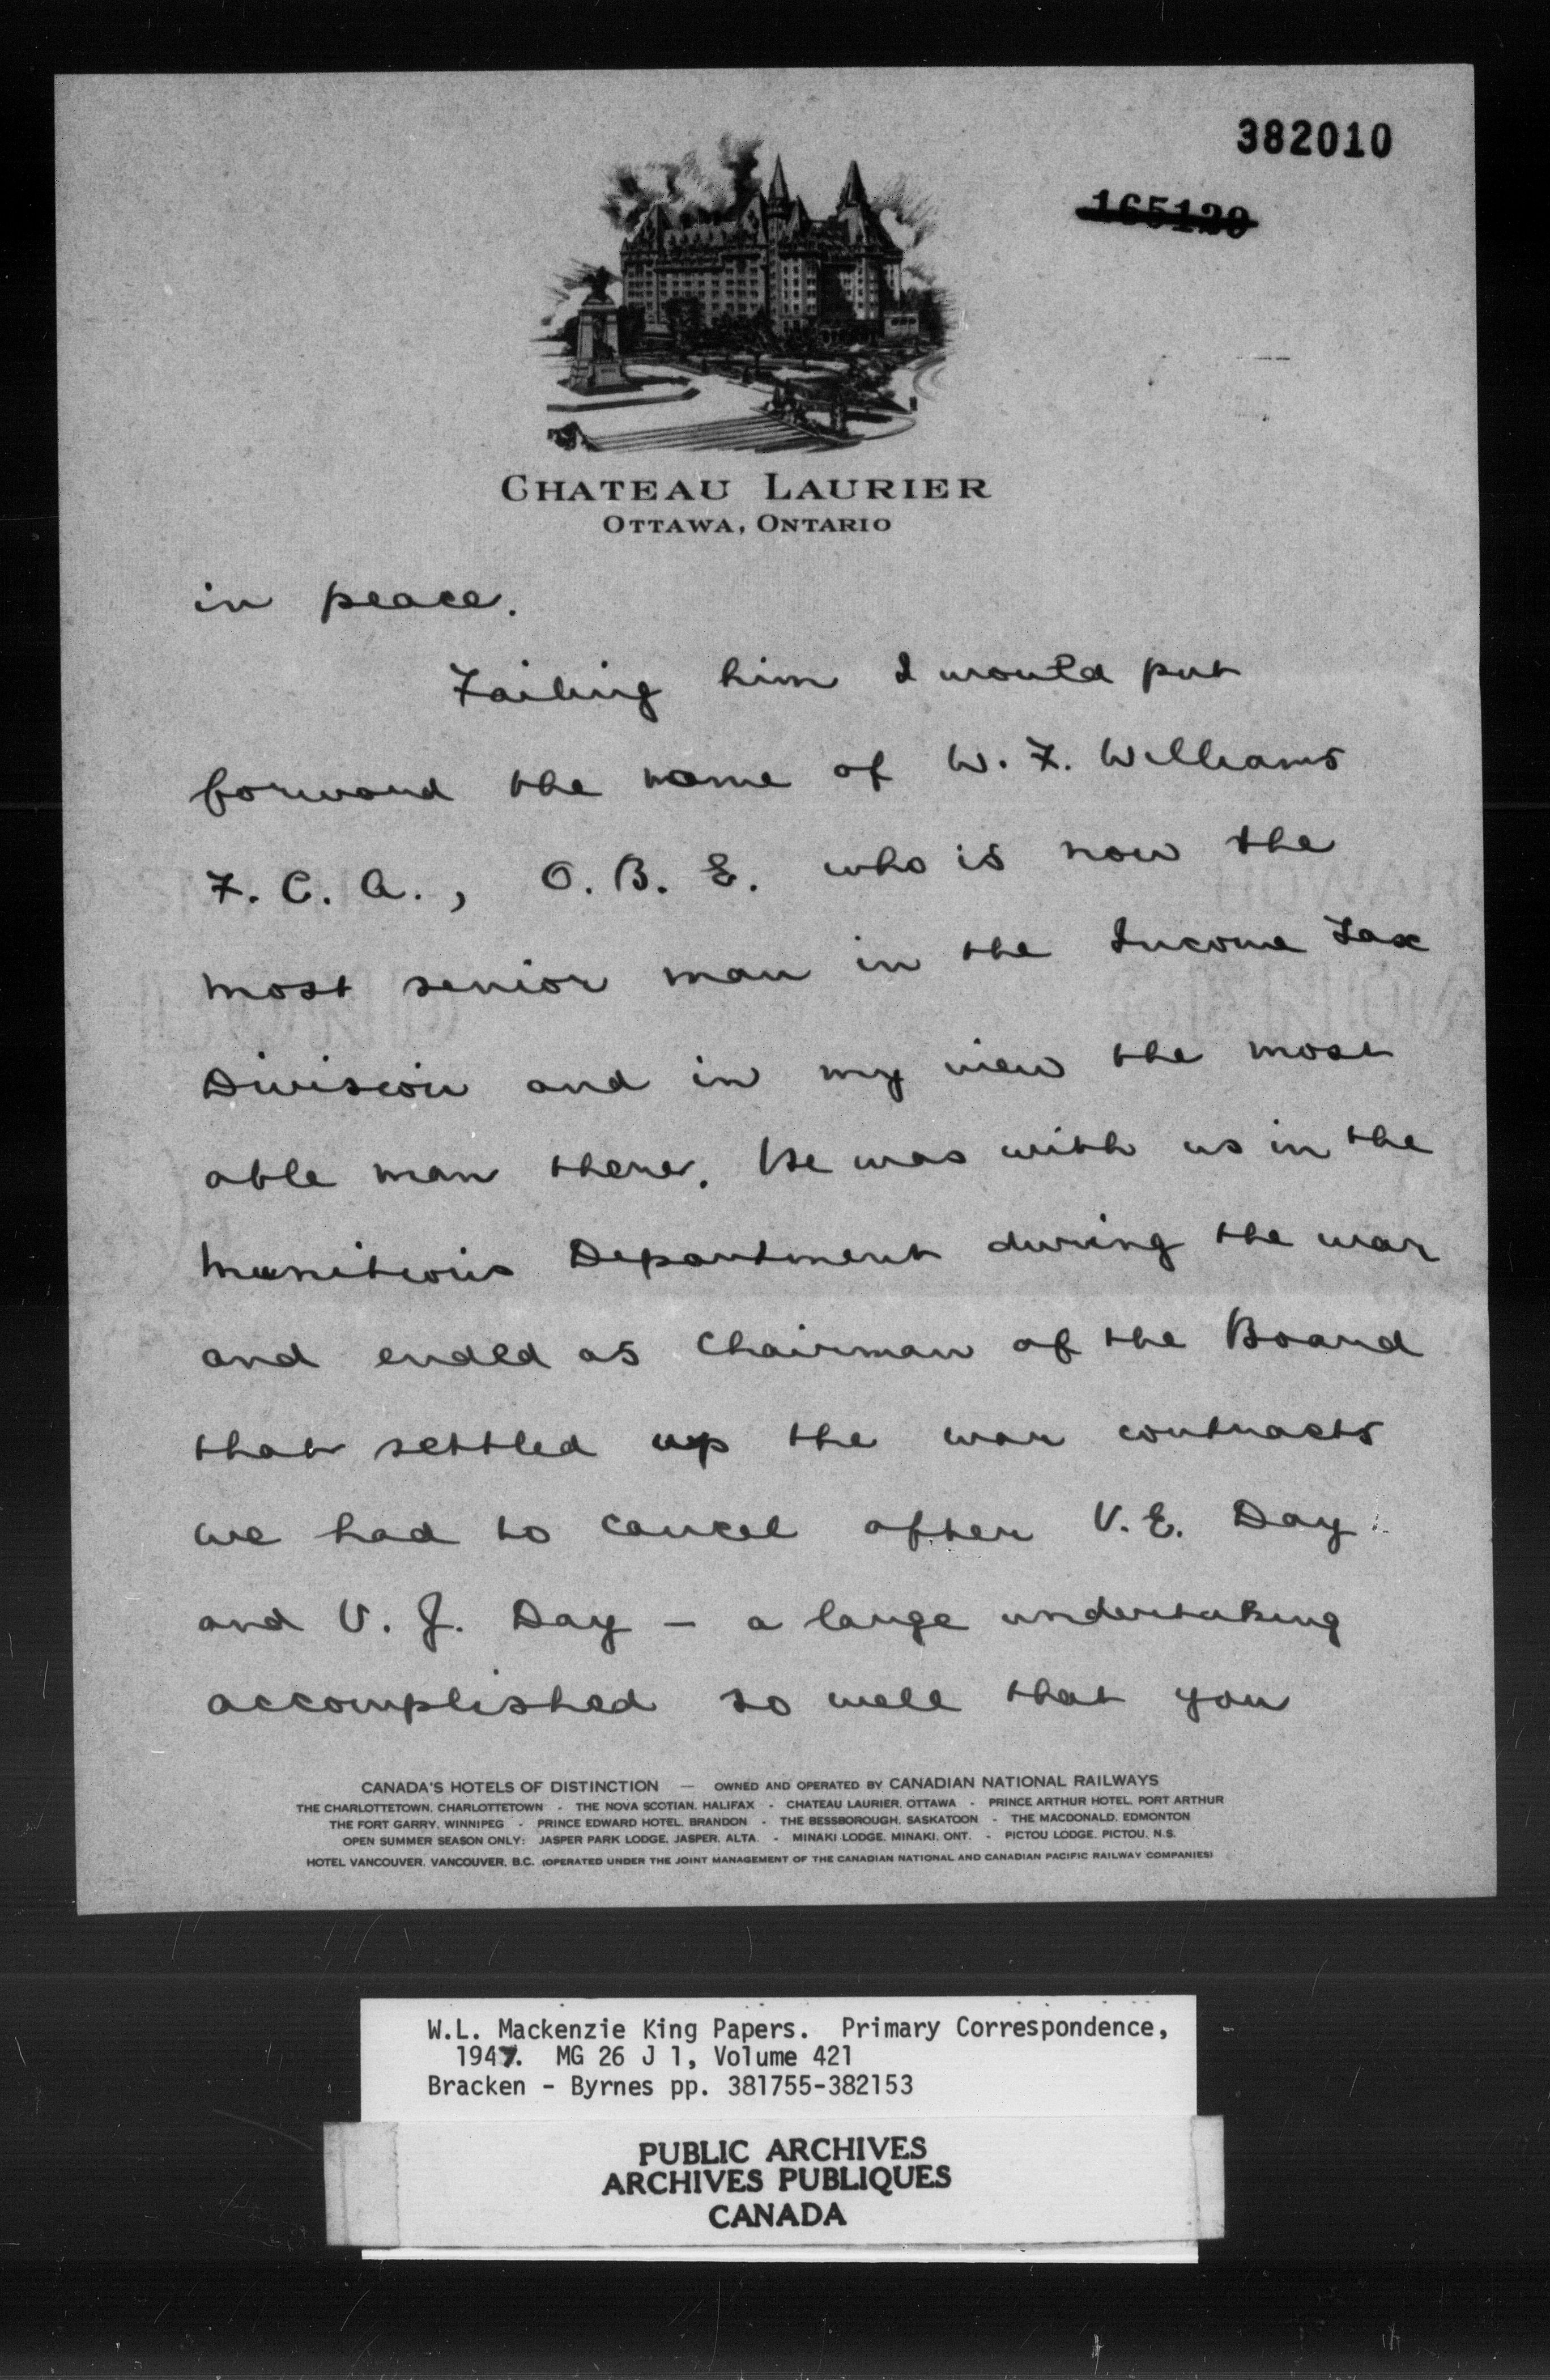 382010
165129
CHATEAU LAURIER
OTTAWA, ONTARIO
in peace.
Failing him I would put
forward the name of W. F. Williams
F. C. A., O. B. E. who is now the
most senior man in the Income Tax
Division and in my view the most
able man there. He was with us in the
Munitions Department during the war
and ended as Chairman of the Board
that settled up the war contracts
we had to cancel after V. E. Day
and V. J. Day — a large undertaking
accomplished so well that you
CANADA'S HOTELS OF DISTINCTION — OWNED AND OPERATED BY CANADIAN NATIONAL RAILWAYS
THE CHARLOTTETOWN, CHARLOTTETOWN - THE NOVA SCOTIAN, HALIFAX - CHATEAU LAURIER, OTTAWA - PRINCE ARTHUR HOTEL, PORT ARTHUR
THE FORT GARRY, WINNIPEG - PRINCE EDWARD HOTEL, BRANDON - THE BESSBOROUGH, SASKATOON - THE MACDONALD, EDMONTON
OPEN SUMMER SEASON ONLY: JASPER PARK LODGE, JASPER, ALTA. - MINAKI LODGE, MINAKI, ONT. - PICTOU LODGE, PICTOU, N.S.
HOTEL VANCOUVER, VANCOUVER, B.C. (OPERATED UNDER THE JOINT MANAGEMENT OF THE CANADIAN NATIONAL AND CANADIAN PACIFIC RAILWAY COMPANIES)
W.L. Mackenzie King Papers. Primary Correspondence,
1947. MG 26 J 1, Volume 421
Bracken - Byrnes pp. 381755-382153
PUBLIC ARCHIVES
ARCHIVES PUBLIQUES
CANADA